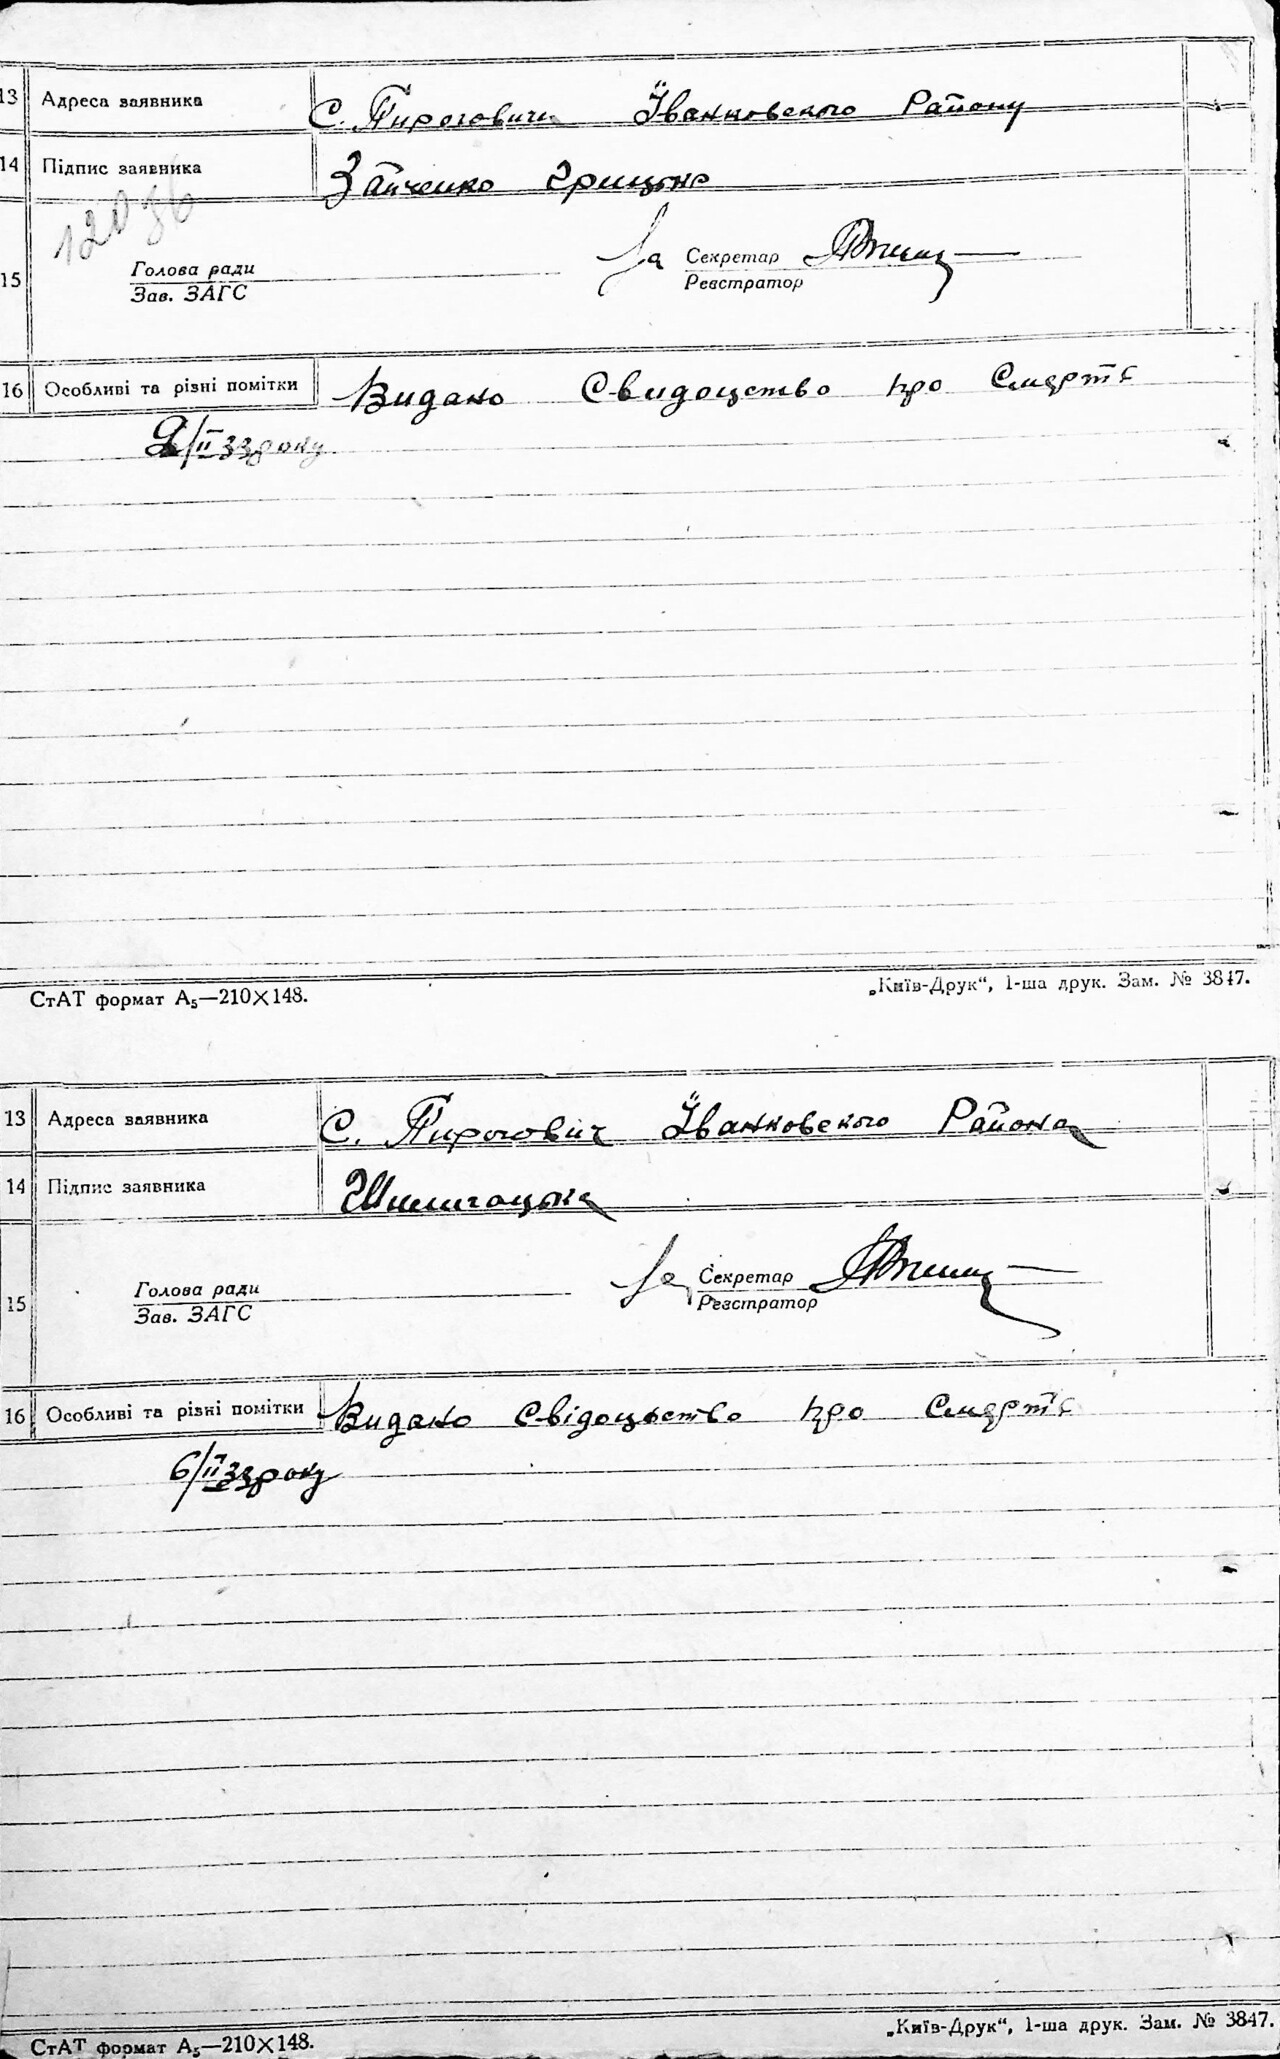 13 Адреса заявника С. Пироговичи Їванковского Району
14 Підпис заявника Зайченко Грицько
120 зв
15 Голова ради За Секретар
Зав. ЗАГС Реєстратор
16 Особливі та різні помітки Видано Свидоцтво про Смерть
2/II 33 року
СтАТ формат А₅—210×148. „Київ-Друк“, 1-ша друк. Зам. № 3847.
13 Адреса заявника С. Пирогович Їванковского Района
14 Підпис заявника
15 Голова ради За Секретар
Зав. ЗАГС Реєстратор
16 Особливі та різні помітки Видано Свідоцьство про Смерть
6/II 33 року
СтАТ формат А₅—210×148. „Київ-Друк“, 1-ша друк. Зам. № 3847.